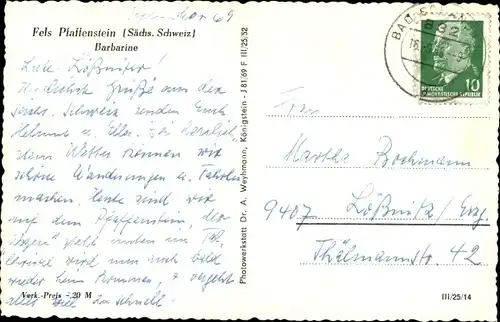 September 69
Fels Pfaffenstein (Sächs. Schweiz)
Barbarine
Liebe Lößnitzer!
Herzlichste Grüße aus der
Sächs. Schweiz senden Euch
Helmut u. Elke. Bei herrlich
Wetter können wir
schöne Wanderungen u. Fahrten
machen. Heute sind wir
auf dem Pfaffenstein, der
steht unten im Tal,
wird man auch bald
wieder heim kommen, u. vergeht
alles viel zu schnell
Verk.-Preis -,20 M
Photowerkstatt Dr. A. Weyhmann, Königstein - J 81/69 F III/25/52
BAD
832
DEUTSCHE
DEMOKRATISCHE REPUBLIK
10
Frau
Martha Bochmann
9407 Lößnitz/Erzg.
Thälmannstr. 42
III/25/14